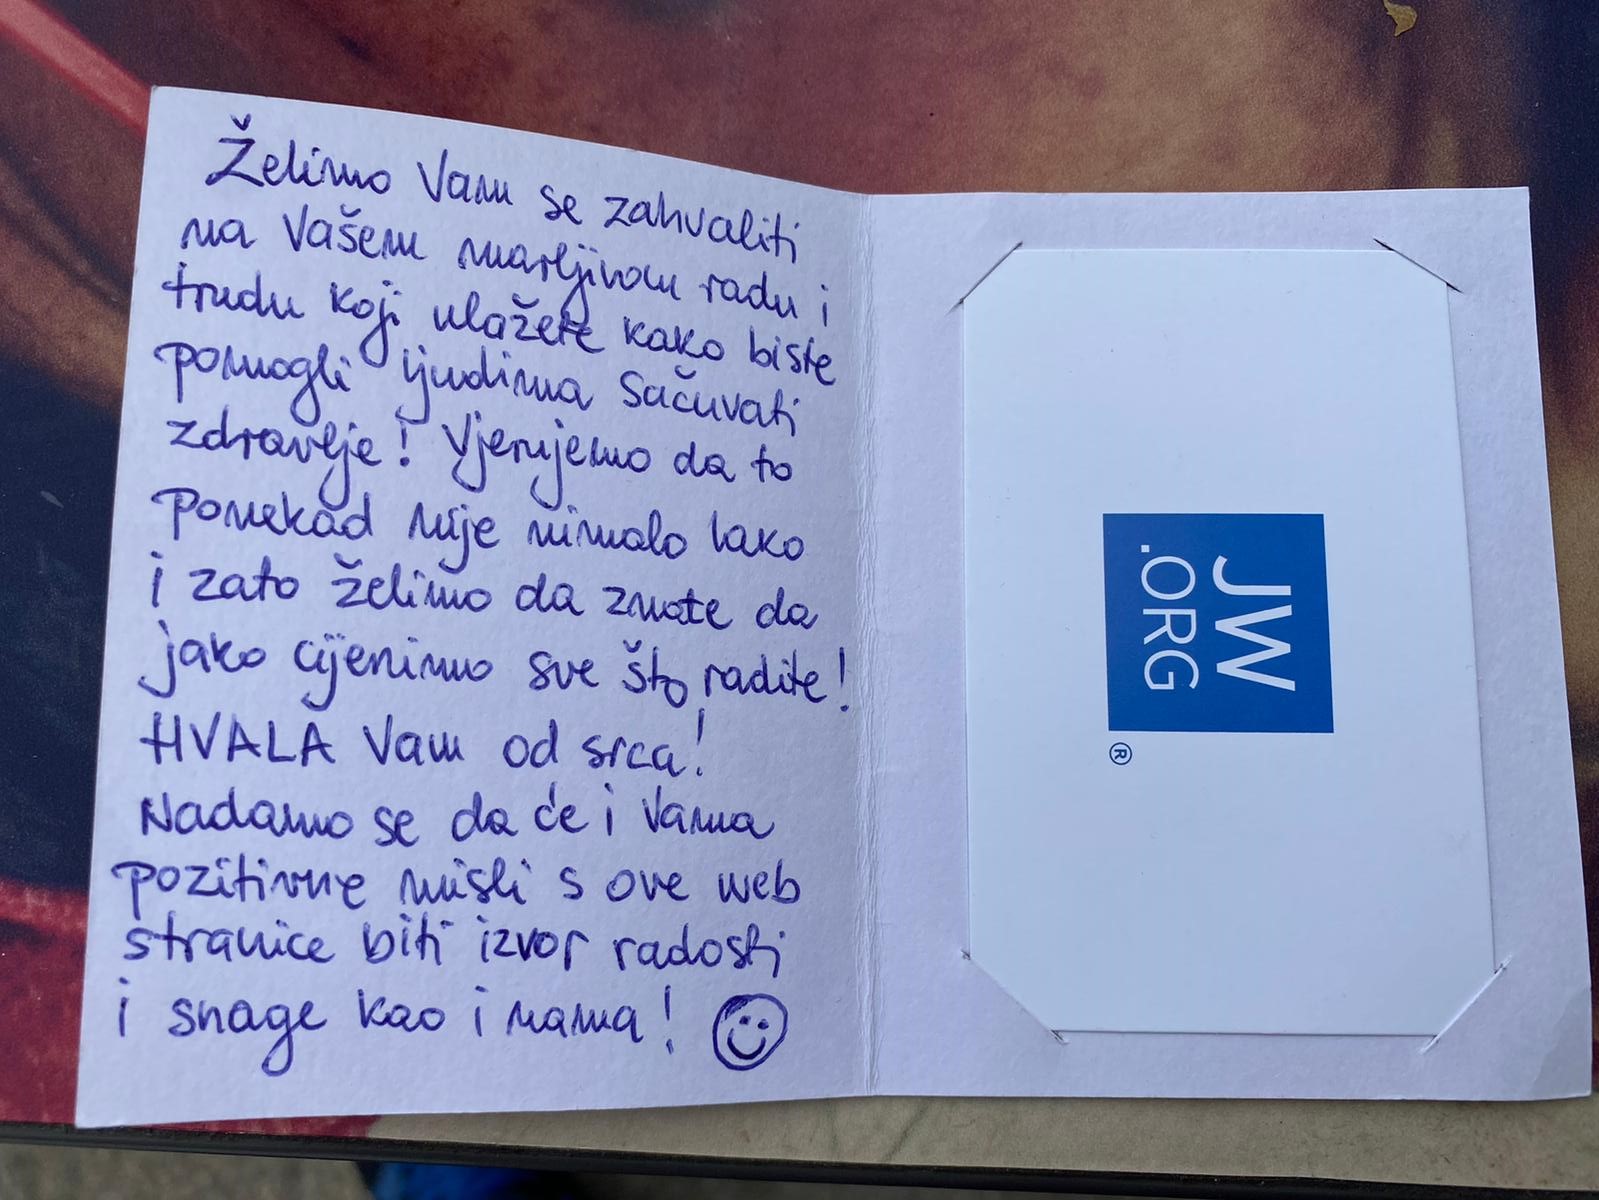 Želimo Vam se zahvaliti
na Vašem marljivom radu i
trudu koji ulažete kako biste
pomogli ljudima sačuvati
zdravlje! Vjerujemo da to
ponekad nije nimalo lako
i zato želimo da znate da
jako cijenimo sve što radite!
HVALA Vam od srca!
Nadamo se da će i Vama
pozitivne misli s ove web
stranice biti izvor radosti
i snage kao i nama!
JW
.ORG
®